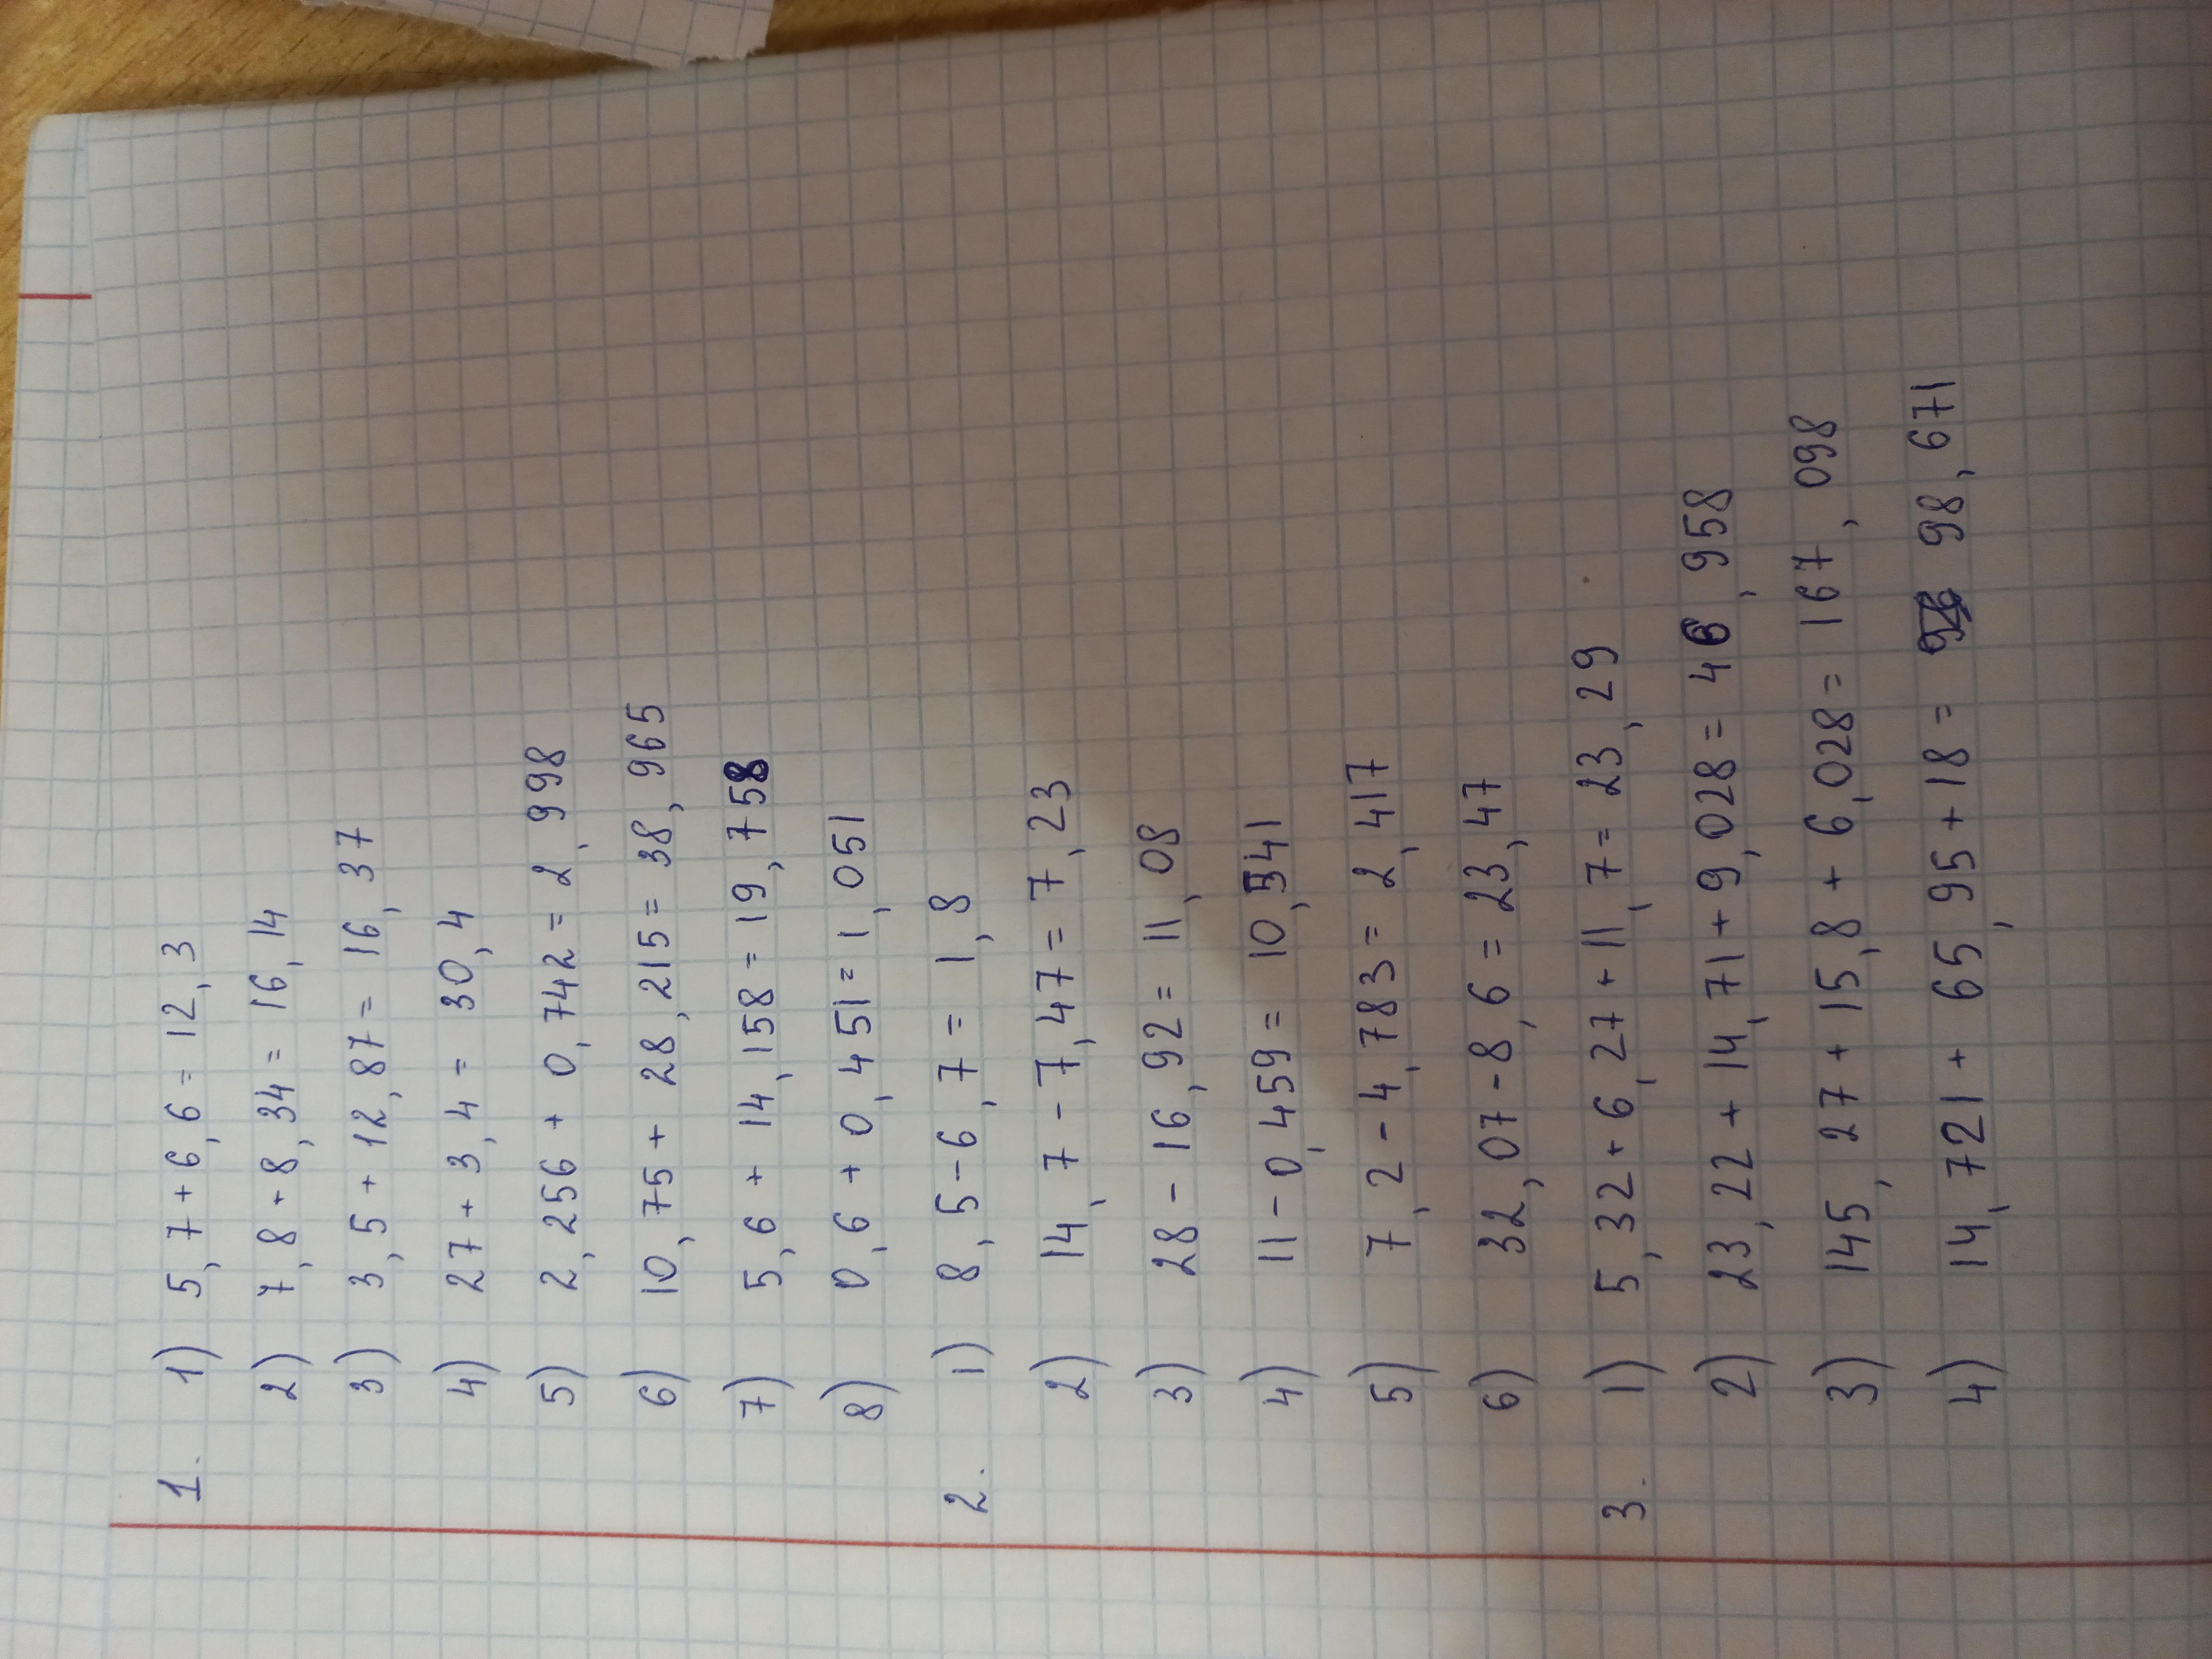 1. 1) 5,7+6,6=12,3
2) 7,8+8,34=16,14
3) 3,5+12,87=16,37
4) 27+3,4=30,4
5) 2,256+0,742=2,998
6) 10,75+28,215=38,965
7) 5,6+14,158=19,758
8) 0,6+0,451=1,051
2. 1) 8,5-6,7=1,8
2) 14,7-7,47=7,23
3) 28-16,92=11,08
4) 11-0,459=10,541
5) 7,2-4,783=2,417
6) 32,07-8,6=23,47
3. 1) 5,32+6,27+11,7=23,29
2) 23,22+14,71+9,028=46,958
3) 145,27+15,8+6,028=167,098
4) 14,721+65,95+18=98,671